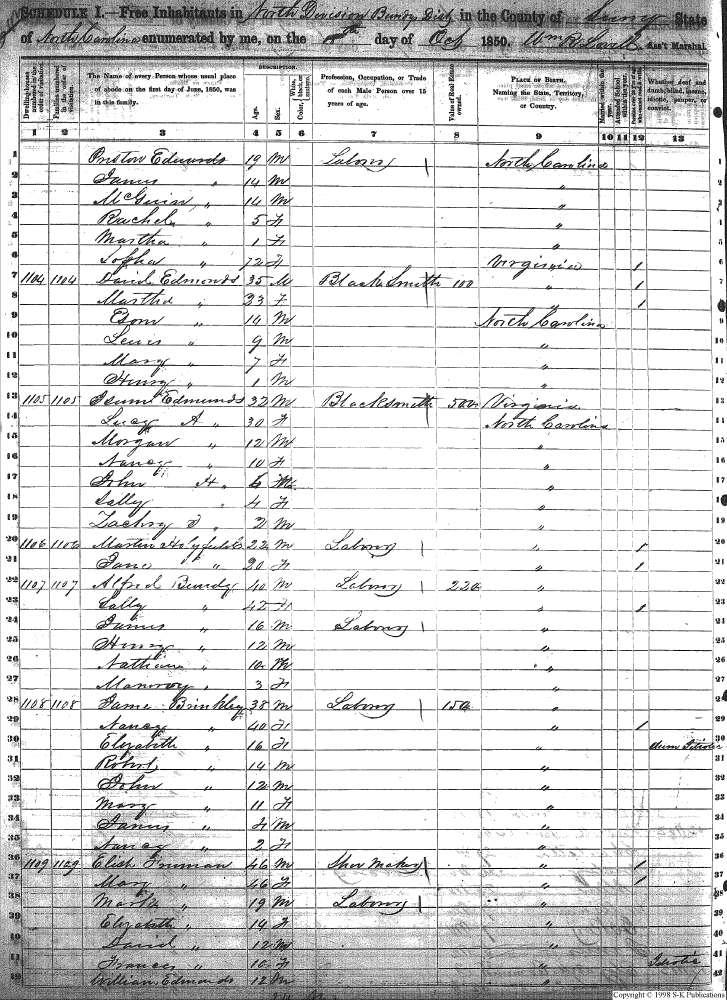 SCHEDULE I.—Free Inhabitants in North Division Bundy Dist in the County of Surry State
of North Carolina enumerated by me, on the day of Oct 1850. Wm R Lovill Ass't Marshal.
DESCRIPTION.
Dwelling-houses numbered in the order of visitation.
Families numbered in the order of visitation.
The Name of every Person whose usual place of abode on the first day of June, 1850, was in this family.
Age.
Sex.
Color, White, black, or mulatto.
Profession, Occupation, or Trade of each Male Person over 15 years of age.
Value of Real Estate owned.
PLACE OF BIRTH. Naming the State, Territory, or Country.
Married within the year.
Attended School within the year.
Whether deaf and dumb, blind, insane, idiotic, pauper, or convict.
1 2 3 4 5 6 7 8 9 10 11 12 13
1 Edwards 19 M Laborer North Carolina 1
2 James " 14 M " 2
3 McGuin " 14 M " 3
4 Rachel " 5 F " 4
5 Martha " 1 F " 5
6 " 72 F Virginia 1 6
7 1104 1104 David Edmonds 35 M BlackSmith 100 " 1 7
8 Martha " 33 F " 1 8
9 " 14 M North Carolina 9
10 Lewis " 9 M " 10
11 Mary " 7 F " 11
12 Henry " 1 M " 12
13 1105 1105 Edmunds 32 M Blacksmith 500 Virginia 13
14 Lucy A " 30 F North Carolina 14
15 Morgan " 12 M " 15
16 Nancy " 10 F " 16
17 John H " 6 M " 17
18 Sally " 4 F " 18
19 Zachry T " 2 M " 19
20 1106 1106 Martin 22 M Laborer " 1 20
21 Jane " " 20 F " 1 21
22 1107 1107 Alfred Bundy 40 M Laborer 220 " 22
23 Sally " 42 F " 1 23
24 James " 16 M Laborer " 24
25 Henry " 12 M " 25
26 Nathan " 10 M " 26
27 " 3 F " 27
28 1108 1108 Jame Brinkley 38 M Laborer 150 " 28
29 Nancy " 40 F " 1 29
30 Elizabeth " 16 F " Idiotic 30
31 Robert " 14 M " 31
32 John " 12 M " 32
33 Mary " 11 F " 33
34 James " M " 34
35 Nancy " 2 F " 35
36 1109 1109 Elish Truman 46 M Shoe Maker " 1 36
37 Mary " 46 F " 1 37
38 " 19 M Laborer " 38
39 Elizabeth " 14 F " 39
40 David " 12 M " 40
41 Frances " 10 F " Idiotic 41
42 William Edmonds 12 M " 42
Copyright © 1998 S-K Publications